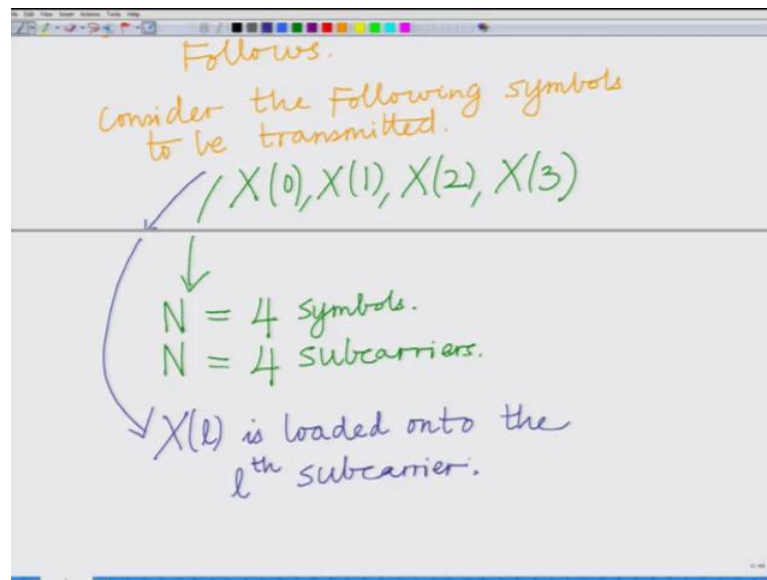 Follows.
Consider the Following symbols
to be transmitted.
X(0), X(1), X(2), X(3)
N = 4 symbols.
N = 4 subcarriers.
X(l) is loaded onto the
lth subcarrier.